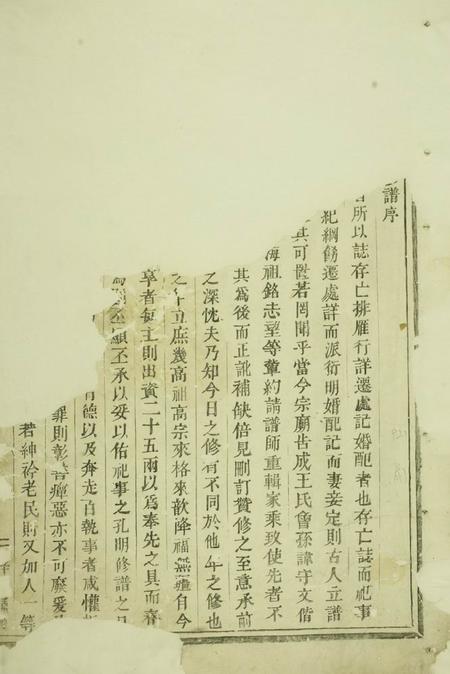 譜序
所以誌存亡排雁行詳遷處記婚配者也存亡誌而祀事
紀綱飭遷處詳而派衍明婚配記而妻妾定則古人立譜
其可壍若罔聞乎當今宗廟告成王氏會孫諱守文偕
海祖銘志堂等輩約請譜師重輯家乘致使先者不
其爲後而正訛補缺倍見刪訂贊修之至意承前
之深忱夫乃知今日之修有不同於他年之修也
之年立庶幾高祖高宗來格來歆降福無疆自今
宰者每主則出資二十五兩以爲奉先之具而春
丕顯丕承以妥以佑祀事之孔明修譜之
有德以及奔走自執事者咸懽
罪則彰善癉惡亦不可廢爰
若紳衿老民則又加人一等